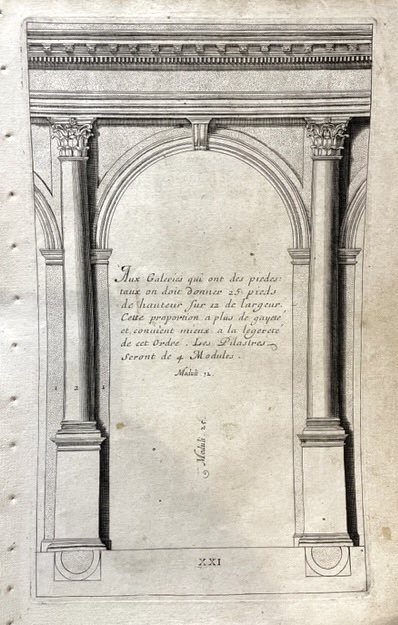 Aux Galeries qui ont des piedes-
taux on doit donner 25 pieds
de hauteur sur 12 de largeur.
Cette proportion a plus de gayete
et convient mieux a la légereté
de cet Ordre. Les Pilastres
seront de 4 Modules.
Moduli 12.
1 2 1
Moduli 25
XXI